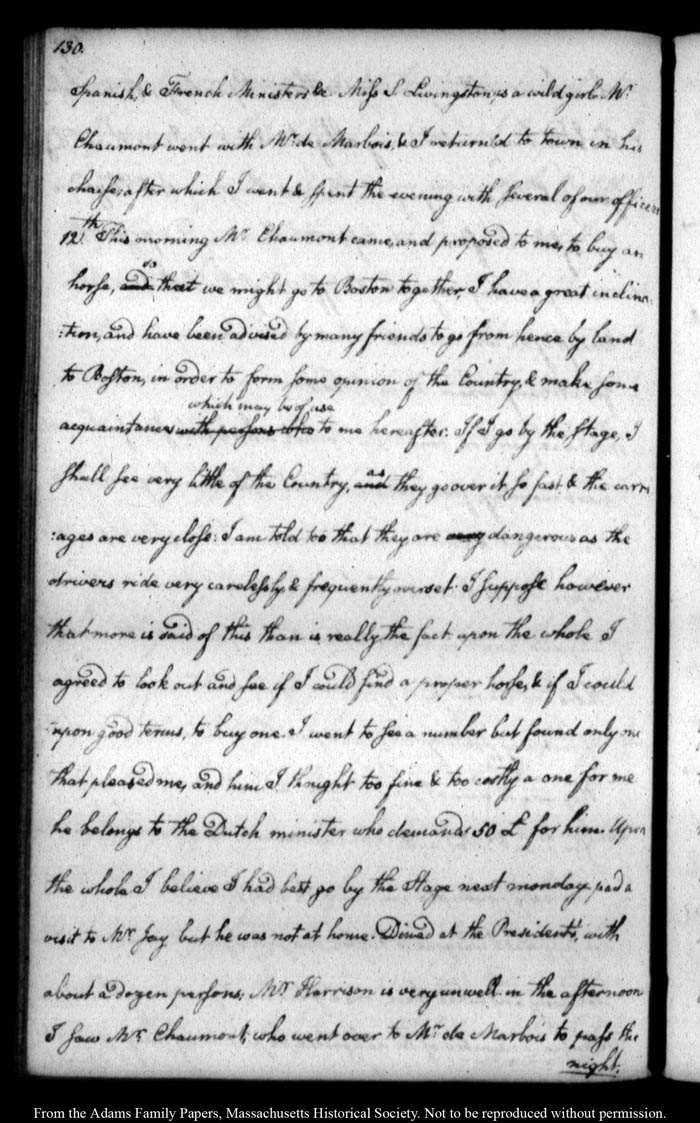 130.
Spanish, & French Ministers &c. Miss S. Livingston, is a wild girl. Mr.
Chaumont went with Mr. de Marbois, & I return'd to town in his
chaise; after which I went & spent the evening with several of our officers
12th. This morning Mr. Chaumont came, and proposed to me, to buy an
so
horse, and that we might go to Boston together, I have a great inclina-
:tion, and have been advised by many friends to go from hence by land
to Boston, in order to form some opinion of the Country, & make some
which may be of use
acquaintances with persons who to me hereafter. If I go by the Stage, I
shall see very little of the Country, and they go over it so fast: & the carri
as
:ages are very close: I am told too that they are very dangerous as the
drivers ride very carelessly, & frequently overset. I suppose however
that more is said of this than is really the fact upon the whole I
agreed to look out and see if I could find a proper horse, & if I could
upon good terms, to buy one. I went to see a number but found only one
that pleased me, and him I thought too fine & too costly a one for me
he belongs to the Dutch minister who demands 50 £ for him. Upon
the whole I believe I had best go by the Stage next monday, paid a
visit to Mr. Jay but he was not at home. Dined at the President's, with
about a dozen persons, Mr. Harrison is very unwell. in the afternoon
I saw Mr. Chaumont, who went over to Mr. de Marbois to pass the
night.
From the Adams Family Papers, Massachusetts Historical Society. Not to be reproduced without permission.